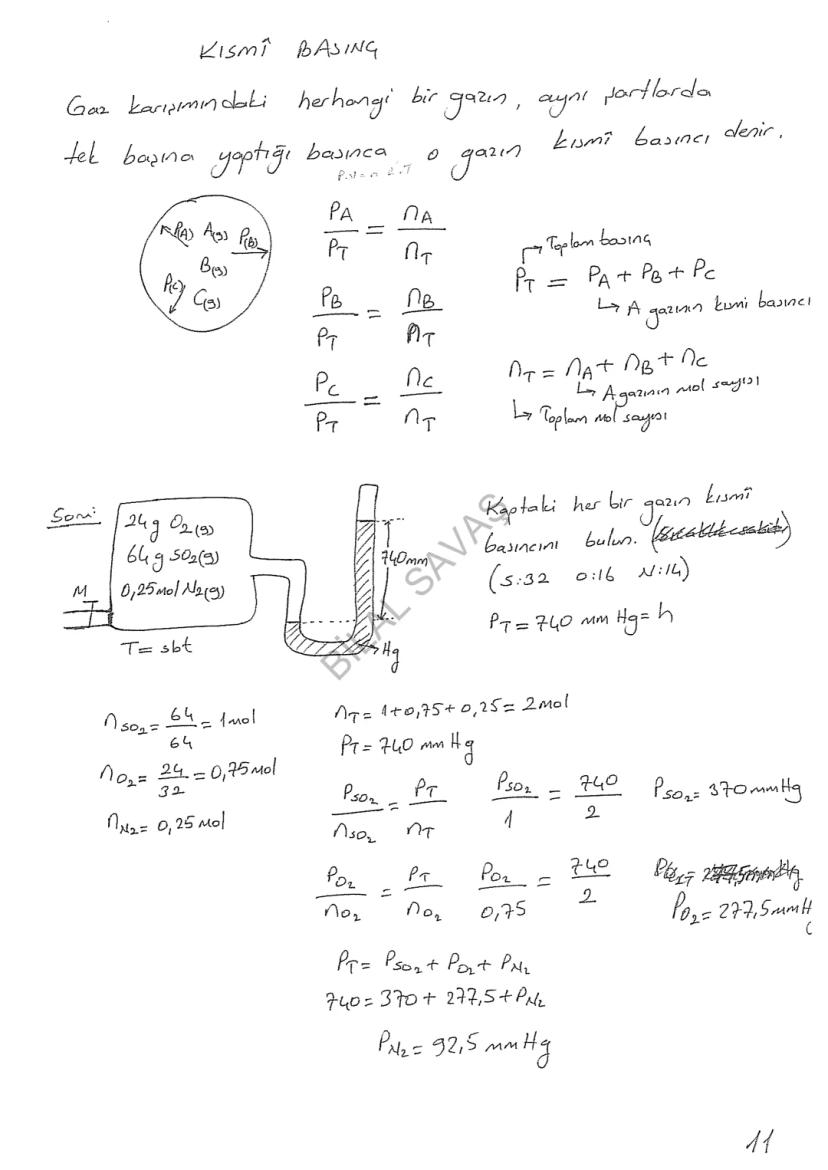 KISMÎ BASINÇ
Gaz karışımındaki herhangi bir gazın, aynı şartlarda
tek başına yaptığı basınca o gazın kısmî basıncı denir.
P(A) A(g) P(B)
B(g)
P(C) C(g)
P_A/P_T = n_A/n_T
P_B/P_T = n_B/n_T
P_C/P_T = n_C/n_T
Toplam basınç
P_T = P_A + P_B + P_C
A gazının kısmi basıncı
n_T = n_A + n_B + n_C
A gazının mol sayısı
Toplam mol sayısı
Soru:
24g O2(g)
64g SO2(g)
0,25mol N2(g)
M
T= sbt
740mm
Hg
Kaptaki her bir gazın kısmî
basıncını bulun.
(S:32 O:16 N:14)
P_T = 740 mm Hg = h
BİLAL SAVAŞ
n_SO2 = 64/64 = 1mol
n_O2 = 24/32 = 0,75mol
n_N2 = 0,25mol
n_T = 1+0,75+0,25 = 2mol
P_T = 740 mm Hg
P_SO2/n_SO2 = P_T/n_T P_SO2/1 = 740/2 P_SO2 = 370mmHg
P_O2/n_O2 = P_T/n_O2 P_O2/0,75 = 740/2
P_O2 = 277,5mmH
P_T = P_SO2 + P_O2 + P_N2
740 = 370 + 277,5 + P_N2
P_N2 = 92,5 mmHg
11